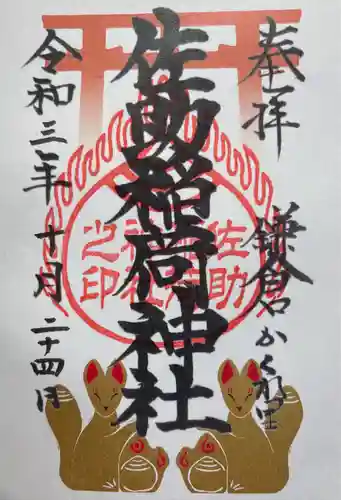 奉拝
鎌倉かくれ里
佐助稲荷神社
令和三年十月二十四日
佐助
稲荷
神社
之印